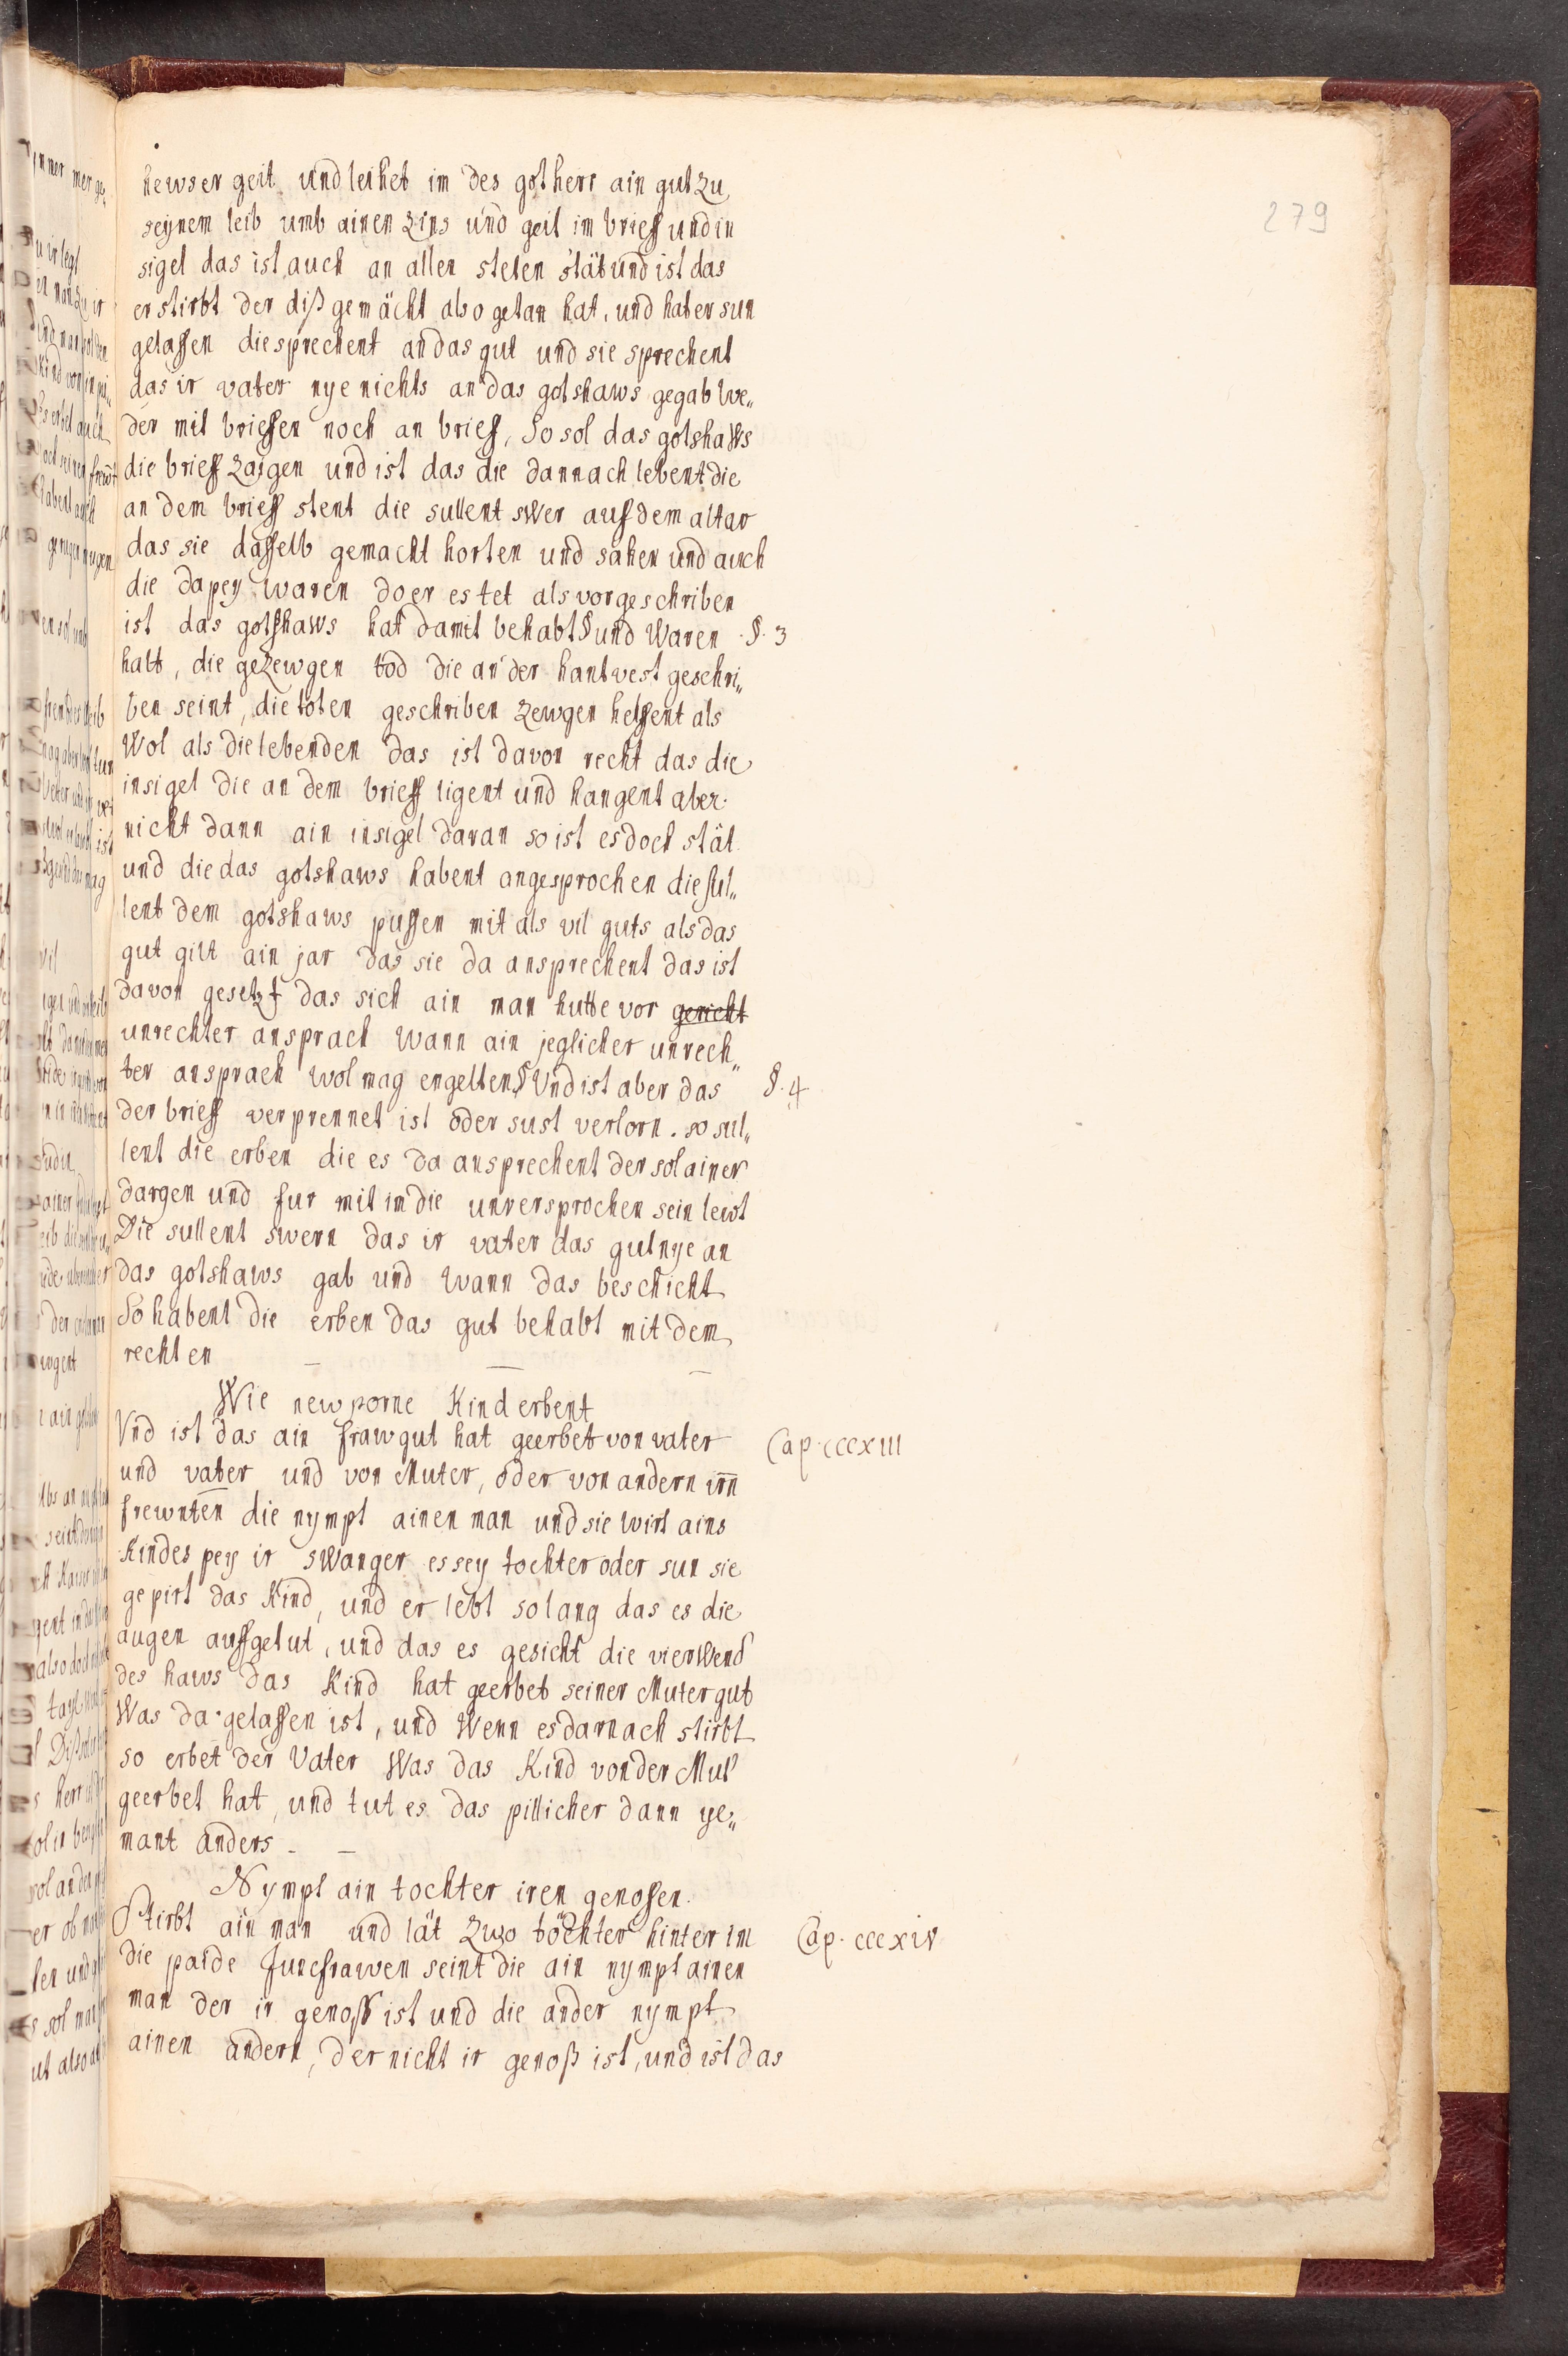 279
hewser geit und leihet im des gotherr ain gut zu
seynem leib umb ainen zins und geit im brieff und in
sigel das ist auch an allen steten stät und ist das
er stirbt der diß gemächt also getan hat, und hat er sun
gelassen die sprechent an das gut und sie sprechent
das ir vater nye nichts an das gotshaws gegab we„
der mit brieffen noch an brieff, So sol das gotshaws
die brieff zaigen und ist das die dannach lebent die
an dem brieff stent die sullent swer auf dem altar
das sie dasselb gemacht horten und sahen und auch
die dapey waren do er es tet als vorgeschriben
ist das gotshaws hat damit behabt § und waren §. 3
halt, die gezewgen tod die an der hantvest geschri„
ben seint, die toten geschriben zewgen helffent als
wol als die lebenden das ist davon recht das die
insigel die an dem brieff ligent und hangent aber
nicht dann ain insigel daran so ist es doch stät
und die das gotshaws habent angesprochen die sul„
lent dem gotshaws pussen mit als vil guts als das
gut gilt ain jar das sie da ansprechent das ist
davon gesetzt das sich ain man hutte vor gericht
unrechter ansprach wann ain jeglicher unrech„
ter ansprach wol mag engelten § Und ist aber das §. 4
der brieff verprennet ist oder sust verlorn. so sul„
lent die erben die es da ansprechent der sol ainer
dargen und fur mit im die unversprochen sein lewt
Die sullent swern das ir vater das gut nye an
das gotshaws gab und wann das beschicht
So habent die erben das gut behabt mit dem
rechten
Wie newporne Kind erbent
Vnd ist das ain fraw gut hat geerbet von vater Cap. cccxiii
und vater und von Muter, oder von andern irn̄
frewnten die nympt ainen man und sie wirt ains
Kindes pey ir swanger es sey tochter oder sun sie
gepirt das Kind, und er lebt solang das es die
augen auffgetut, und das es gesicht die vier wend
des haws das Kind hat geerbet seiner Muter gut
Was da gelassen ist, und wenn es darnach stirbt
so erbet der Vater was das Kind von der Mut'
geerbet hat, und tut es das pillicher dann ye„
mant anders
Nympt ain tochter iren genossen.
Stirbt ain man und lät zwo töchter hinter im Cap. cccxiv
die paide Juncfrawen seint die ain nympt ainen
man der ir genoss ist und die ander nympt
ainen andern, der nicht ir genoß ist, und ist das